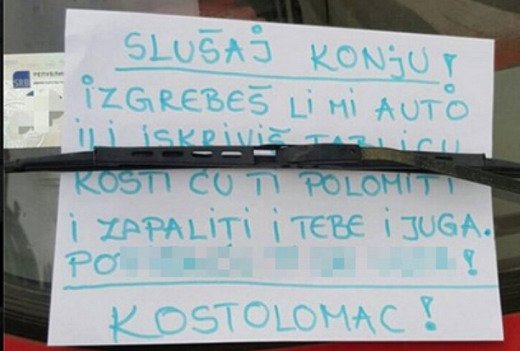 SRB
РЕПУБЛИ
SLUŠAJ KONJU!
IZGREBEŠ LI MI AUTO
ILI ISKRIVIŠ TABLICU
KOSTI ĆU TI POLOMITI
I ZAPALITI I TEBE I JUGA.
KOSTOLOMAC!